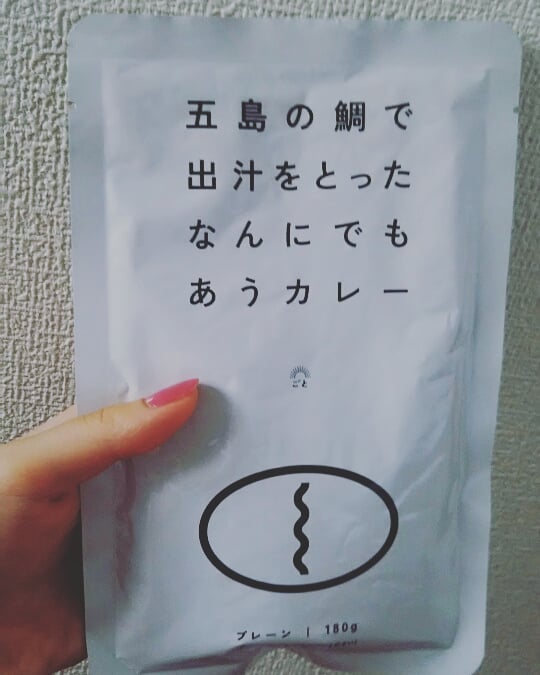 五島の鯛で
出汁をとった
なんにでも
あうカレー
ごと
プレーン | 180g